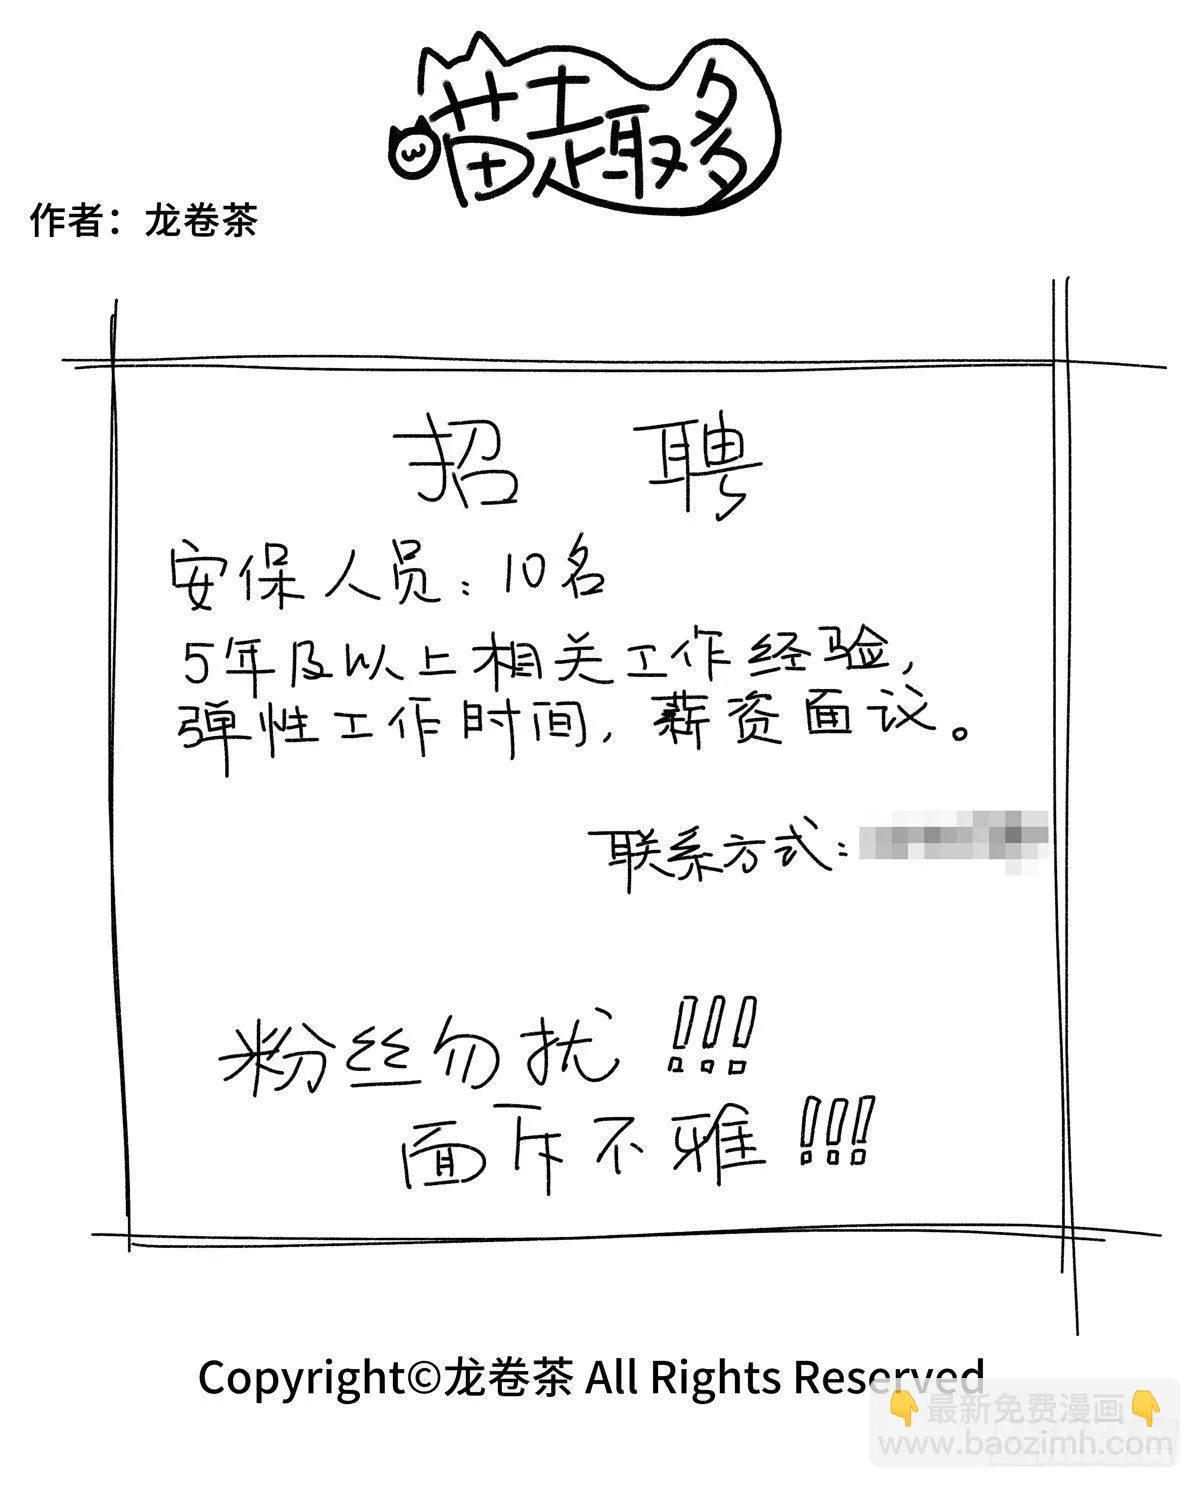 喵趣多
作者：龙卷茶
招聘
安保人员：10名
5年及以上相关工作经验，
弹性工作时间，薪资面议。
联系方式：
粉丝勿扰!!!
面斥不雅!!!
Copyright©龙卷茶 All Rights Reserved
👇最新免费漫画👇
www.baozimh.com